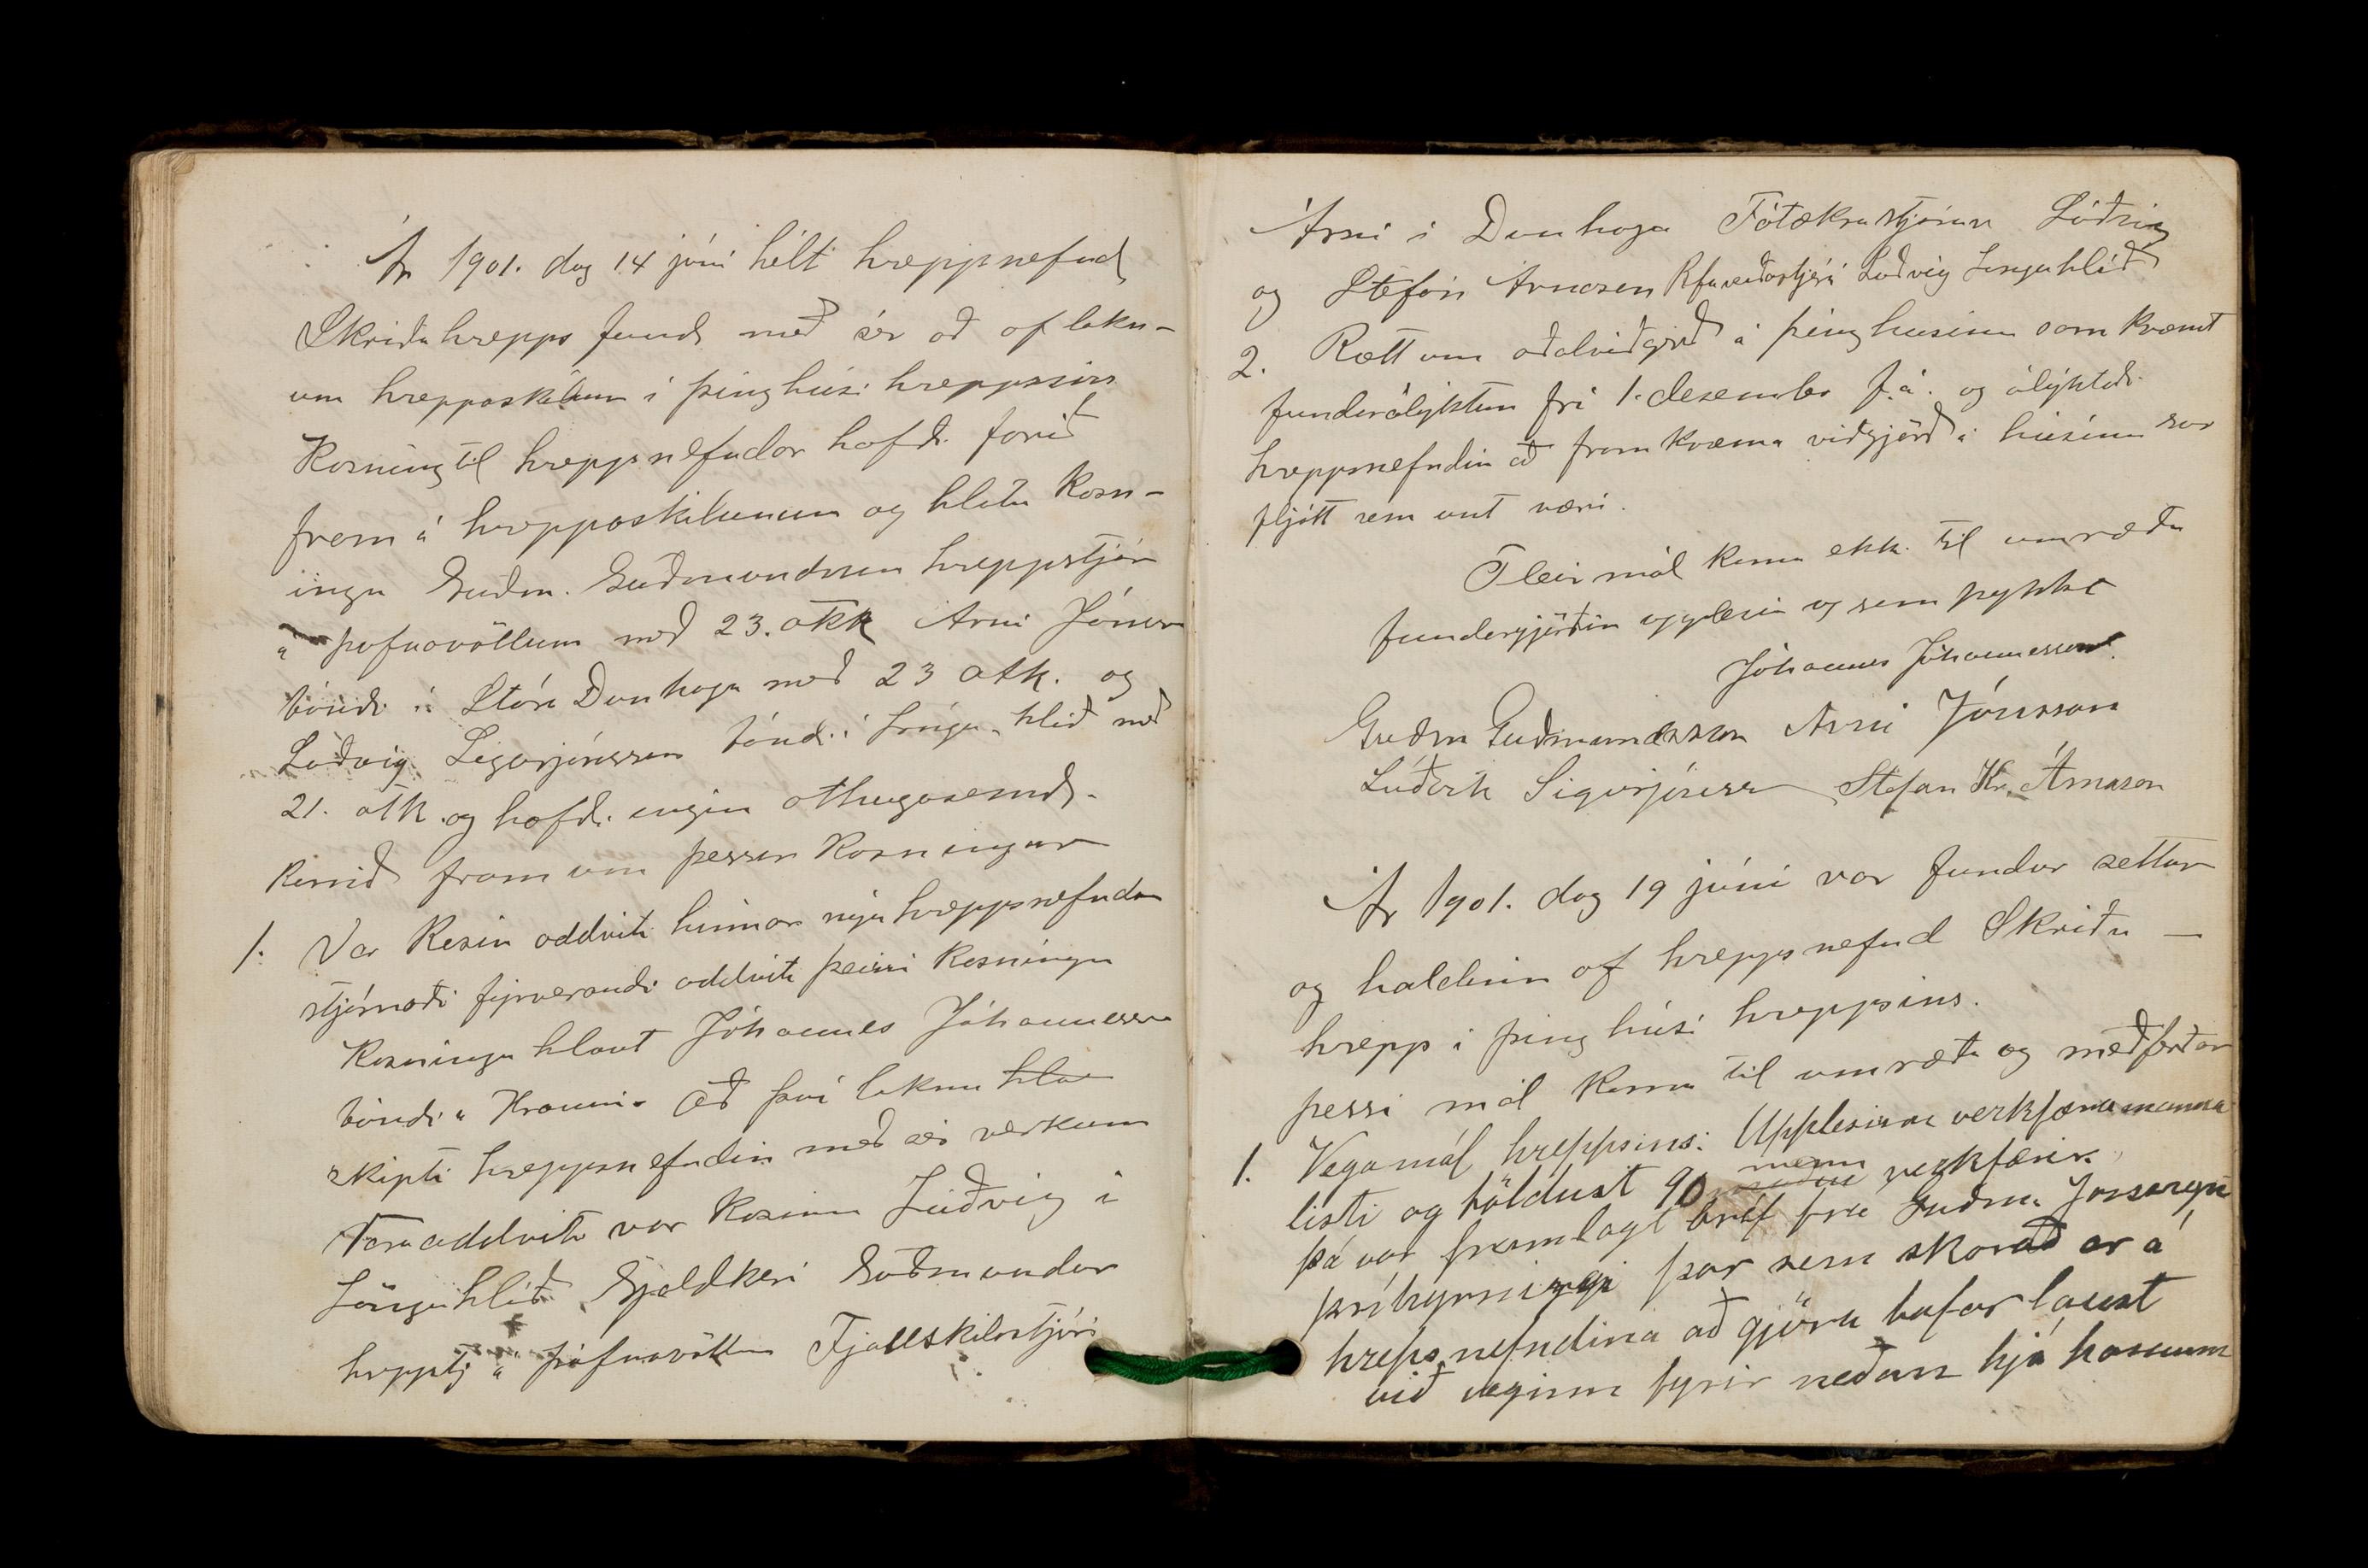 Ár 1901. dag 14 júni hélt hreppsnefnd
Skriðuhrepps fund með sér að aflokn-
um hreppaskilum i þinghúsi hreppsins
Kosning til hreppsnefndar hafði farið
fram á hreppaskilunum og hlutu Kosn-
ingu Guðm. Guðmundsson hreppstjóri
á þúfnavöllum með 23. atkk Arni Jónsson
bóndi á Stóra Dunhaga með 23 atk. og
Loðvig Sigurjónsson bóndi i Lönguhlið með
21. atk. og hafði engin athugasemd
Komið fram um þessar Kosningar
1. Var Kosin oddviti hinnar nýu hreppsnefndar
stjórnaði fyrverandi oddviti þeirri Kosningu
Kosningu hlaut Jóhannes Jóhannesson
bóndi á Hrauni. Að því loknu hlau
skipti hreppsnefndin með sér verkum
Varaoddviti var Kosinn Luðvig i
Lönguhlíð Gjaldkeri Guðmundur
hreppstj á þúfnavöllum Fjallskilastjóri
Árni i Dunhaga Fátækrastjórar Lúðvig
og Stefán Arnason Rfuveiðastjóri Loðvig Lönguhlíð
2. Rætt um aðalviðgerð á þinghúsinu samkvæmt
fundarályktun frá 1. desember f.á. og ályktaði
hreppsnefndin að framkvæma viðgjörð á húsinu svo
fljótt sem unt væri.
Fleiri mál komu ekki til umræðu
fundargjörðin upplesin og samþykkt
Jóhannes Jóhannesson
Guðm Guðmundsson Arni Jónsson
Lúðvik Sigurjónsson Stefan Kr. Árnason
Ár 1901. dag 19 júní var fundur settur
og haldinn af hreppsnefnd Skriðu-
hrepp i þinghúsi hreppsins.
þessi mál komu til umræðu og meðferðar
1. Vegamál hreppsins: Upplesinn verkfæramanna
listi og töldust 90 menn verkfærir
þá var framlagt bréf frá Guðm. Jónssyni
þríhyrningi þar sem skorað er á
hrepsnefndina að gjöra tafarlaust
við veginn fyrir neðan hjá honum